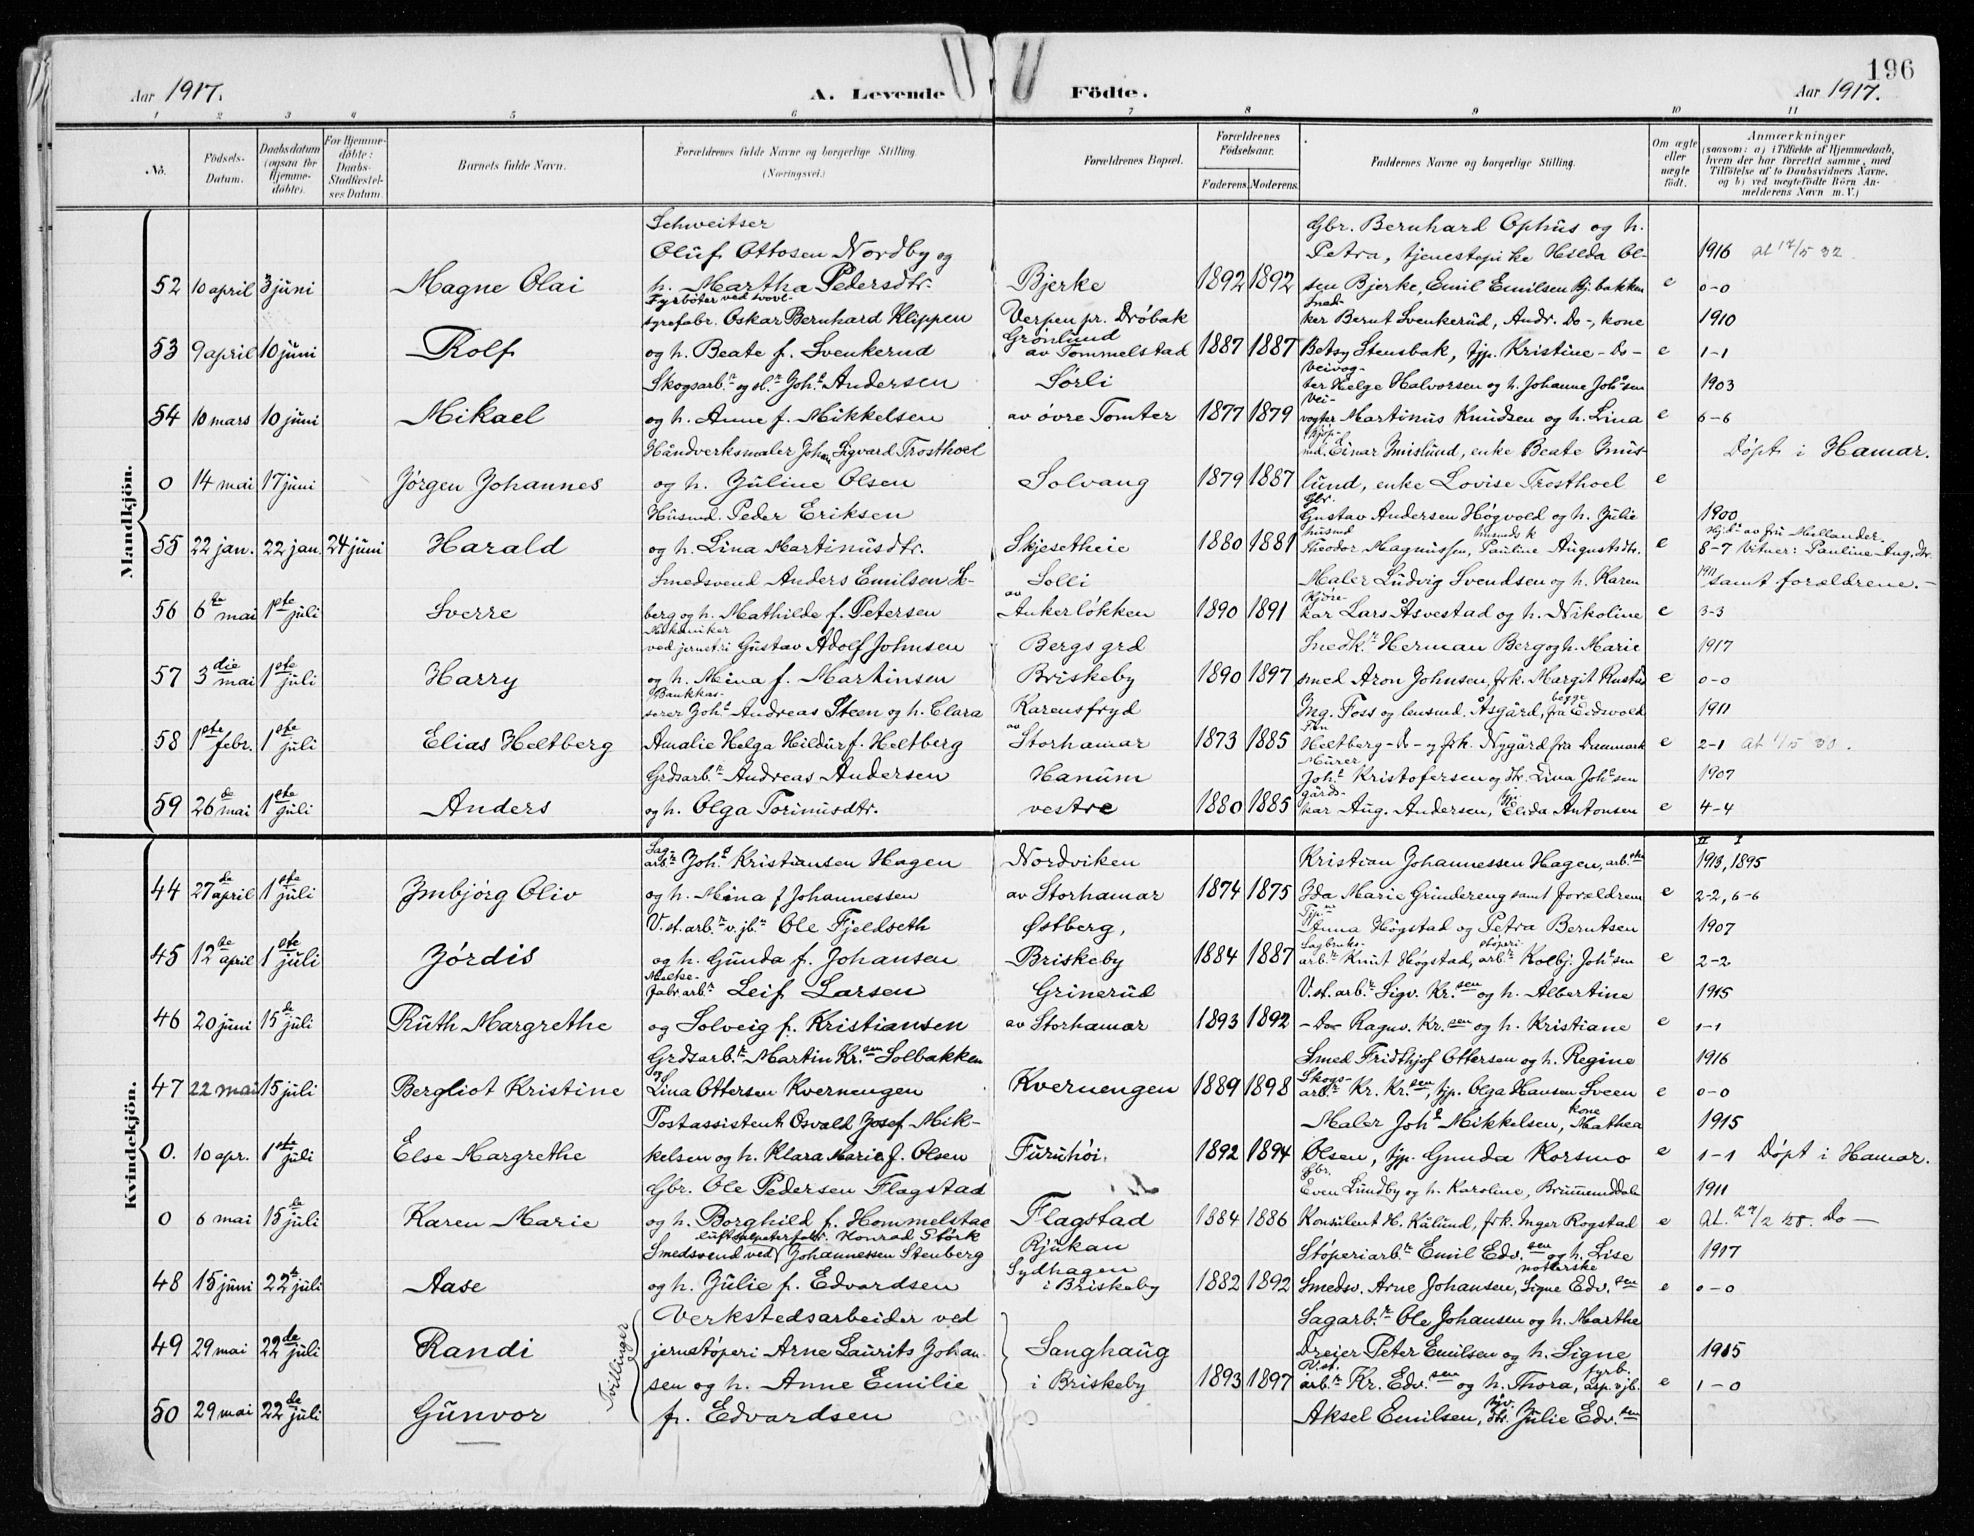 196
Aar 1917. A. Levende Födte. Aar 1917.
1 2 3 4 5 6 7 8 9 10 11
No. Födsels-Datum. Daabsdatum (ogsaa for Hjemmedöbte). For Hjemmedöbte: Daabs-Stadfæstelses Datum. Barnets fulde Navn. Forældrenes fulde Navne og borgerlige Stilling. (Næringsvei.) Forældrenes Bopæl. Forældrenes Födselsaar. Faderens. Moderens. Faddernes Navne og borgerlige Stilling. Om ægte eller uægte födt. Anmærkninger (saasom: a) i Tilfælde af Hjemmedaab, hvem der har forrettet samme, med Tilföielse af to Daabsvidners Navne, og b) ved uægtefödte Börn Anmelderens Navn m. V.)
Mandkjön.
Schweitser Gbr. Bernhard Ophus og h.
Oluf Ottosen Nordby og Petra, tjenestepike Hilda Ol- 1916 at 17/5 32.
52 10 april 3 juni Magne Olai h. Martha Pedersdtr. Bjerke 1892 1892 sen Bjerke, Emil Emilsen Bj.bakken e 0-0
Fyrböter ved svovl- Smed-
syrefabr. Oskar Bernhard Klippen Verpen pr. Dröbak ker Bernt Svenkerud, Andr. Do-, kone 1910
53 9 april 10 juni Rolf og h. Beate f. Svenkerud Grönlund av Tommelstad 1887 1887 Betsy Stensbak, tjp. Kristine -Do- e 1-1
Skogsarb. og sl. Joh. Andersen Sörli veivogter Helge Halvorsen og h. Johanne Joh.sen 1903
54 10 mars 10 juni Mikael og h. Anne f. Mikkelsen av övre Tomter 1877 1879 veivogter Martinus Knudsen og h. Lina e 6-6
Håndverksmaler Johan Sigvard Trosthoel Kjöpmd. Einar Imislund, enke Beate Imis- Döpt i Hamar.
0 14 mai 17 juni Jörgen Johannes og h. Juline Olsen Solvang 1879 1887 lund, enke Lovise Trosthoel e
Husmd. Peder Eriksen Gbr. Gustav Andersen Högvold og h. Julie 1900
55 22 jan. 22 jan. 24 juni Harald og h. Lina Martinusdtr. Skjesetheie 1880 1881 husmd Theodor Magnussen, husmds k Pauline Augustdtr. e 8-7 Hjd. av fru Mellander. Vitner: Pauline Aug.dtr.
Smedsvend Anders Emilsen Se- Solli Maler Ludvig Svendsen og h. Karen 1911 samt forældrene.-
56 6te mai 1ste juli Sverre berg og h. Mathilde f. Petersen av Ankerlökken 1890 1891 Kjörekar Lars Åsvestad og h. Nikoline e 3-3
Mekaniker
ved jernst:i Gustav Adolf Johnsen Bergs grd Smedk. Herman Berg og h. Marie 1917
57 3die mai 1ste juli Harry og h. Mina f. Martinsen Briskeby 1890 1897 smed Aron Johnsen, frk. Margit Rustad e 0-0
Bankkas-
serer Joh. Andreas Steen og h. Clara Karensfryd Ing. Foss og lensmd. Åsgård, begge fra Eidsvold 1911
58 1ste febr. 1ste juli Elias Heltberg Amalie Helga Hildur f. Heltberg av Storhamar 1873 1885 Frk Heltberg -Do- og frk. Nygård fra Danmark e 2-1 at 1/5 30.
Grdsarb. Andreas Andersen Hanum Murer Joh. Kristofersen og dtr. Lina Joh.sen 1907
59 26de mai 1ste juli Anders og h. Olga Torinusdtr. vestre 1880 1885 gårdskar Aug. Andersen, tjp. Elida Antonsen e 4-4
Kvindekjön.
II I
Sag-
arb. Joh. Kristiansen Hagen Nordviken Kristian Johannessen Hagen, arb.ske 1913, 1895
44 27de april 1ste juli Imbjörg Oliv og h. Mina f Johannessen av Storhamar 1874 1875 Ida Marie Gründereng samt forældrene e 2-2, 6-6
V.st.arb. v. jb. Ole Fjeldseth Östberg, Tjp. Anna Högstad og Petra Berntsen 1907
45 12te april 1ste juli Jördis og h. Gunda f. Johansen Briskeby 1884 1887 Sagbruksarb. Knut Högstad, stöperiarb. Kolbj. Joh.sen e 2-2
Melkefabr.arb. Leif Larsen Grinerud V.st.arb. Sigv. Kr.sen og h. Albertine 1915
46 20 juni 15de juli Ruth Margrethe og Solveig f. Kristiansen av Storhamar 1893 1892 -Do- Ragnv. Kr.sen og h. Kristiane e 1-1
Grdsarb. Martin Kr.sen Solbakken Smed Fridthjof Ottersen og h. Regine 1916
47 22 mai 15 juli Bergliot Kristine og Lina Ottersen Kvernengen Kvernengen 1889 1898 Skogsarb. Kr. Kr.sen, tjp. Olga Hansen Sveen e 0-0
Postassistent Osvald Josef Mik- Maler Joh. Mikkelsen, kone Mathea 1915
0. 10 apr. 1ste juli Else Margrethe kelsen og h. Klara Marie f. Olsen Furuhöi. 1892 1894 Olsen, tjp. Gunda Korsmo e 1-1 Döpt i Hamar.
Gbr. Ole Pedersen Flagstad Gbr. Even Lundby og h. Karoline, Brummunddalen 1911
0 6 mai 15de juli Karen Marie og h. Borghild f. Hommelstad Flagstad 1884 1886 Konsulent H. Kålund, frk. Inger Rogstad e At. 27/2 28. Do-
luftsalpeterfabr. Konrad Störk
Smedsvend ved Johannessen Stenberg Rjukan Stöperiarb. Emil Edv.sen og h. Lise 1917
48 15 juni 22de juli Aase og h. Julie f. Edvardsen Sydhagen i Briskeby 1882 1892 Smedsv. Arne Johansen, Signe Edv.sen e 0-0
Verkstedsarbeider ved Sagarb. Ole Johansen og h. Marthe
49 29 mai 22de juli Randi Tvillinger jernstöperi Arne Laurits Johan- Sanghaug Dreier Peter Emilsen og h. Signe 1915
sen og h. Anne Emilie i Briskeby 1893 1897 V.st.arb. Kr. Edv.sen og h. Thora, fyrb.asp. v jb. e 1-0
50 29 mai 22de juli Gunvor f. Edvardsen Aksel Emilsen, Julie Edv.sen